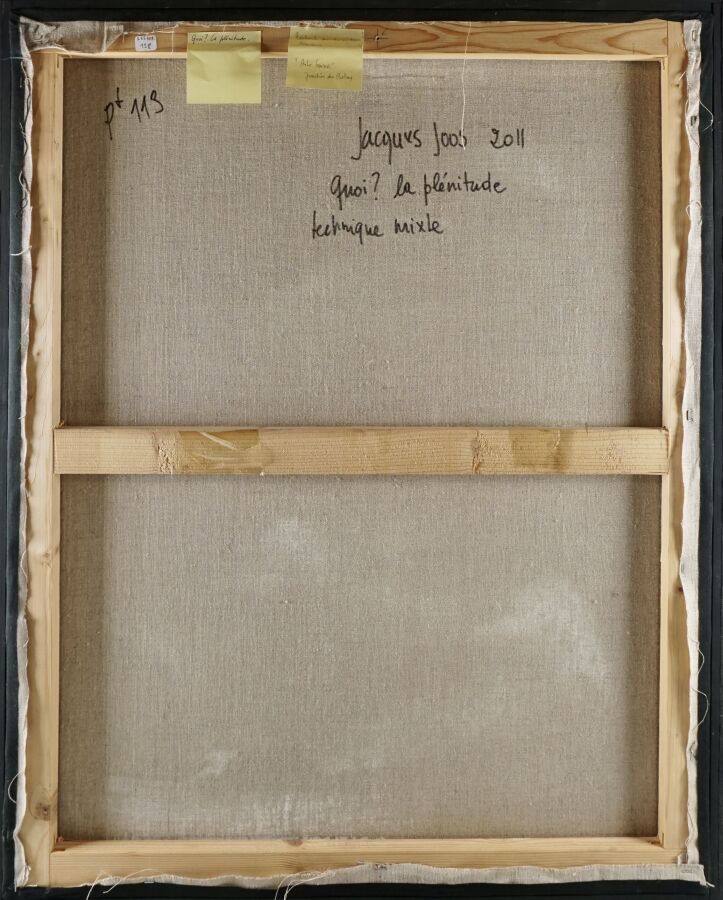 Quoi? La plénitude.
118
pt 119
Jacques Joos 2011
Quoi? la plénitude
technique mixte